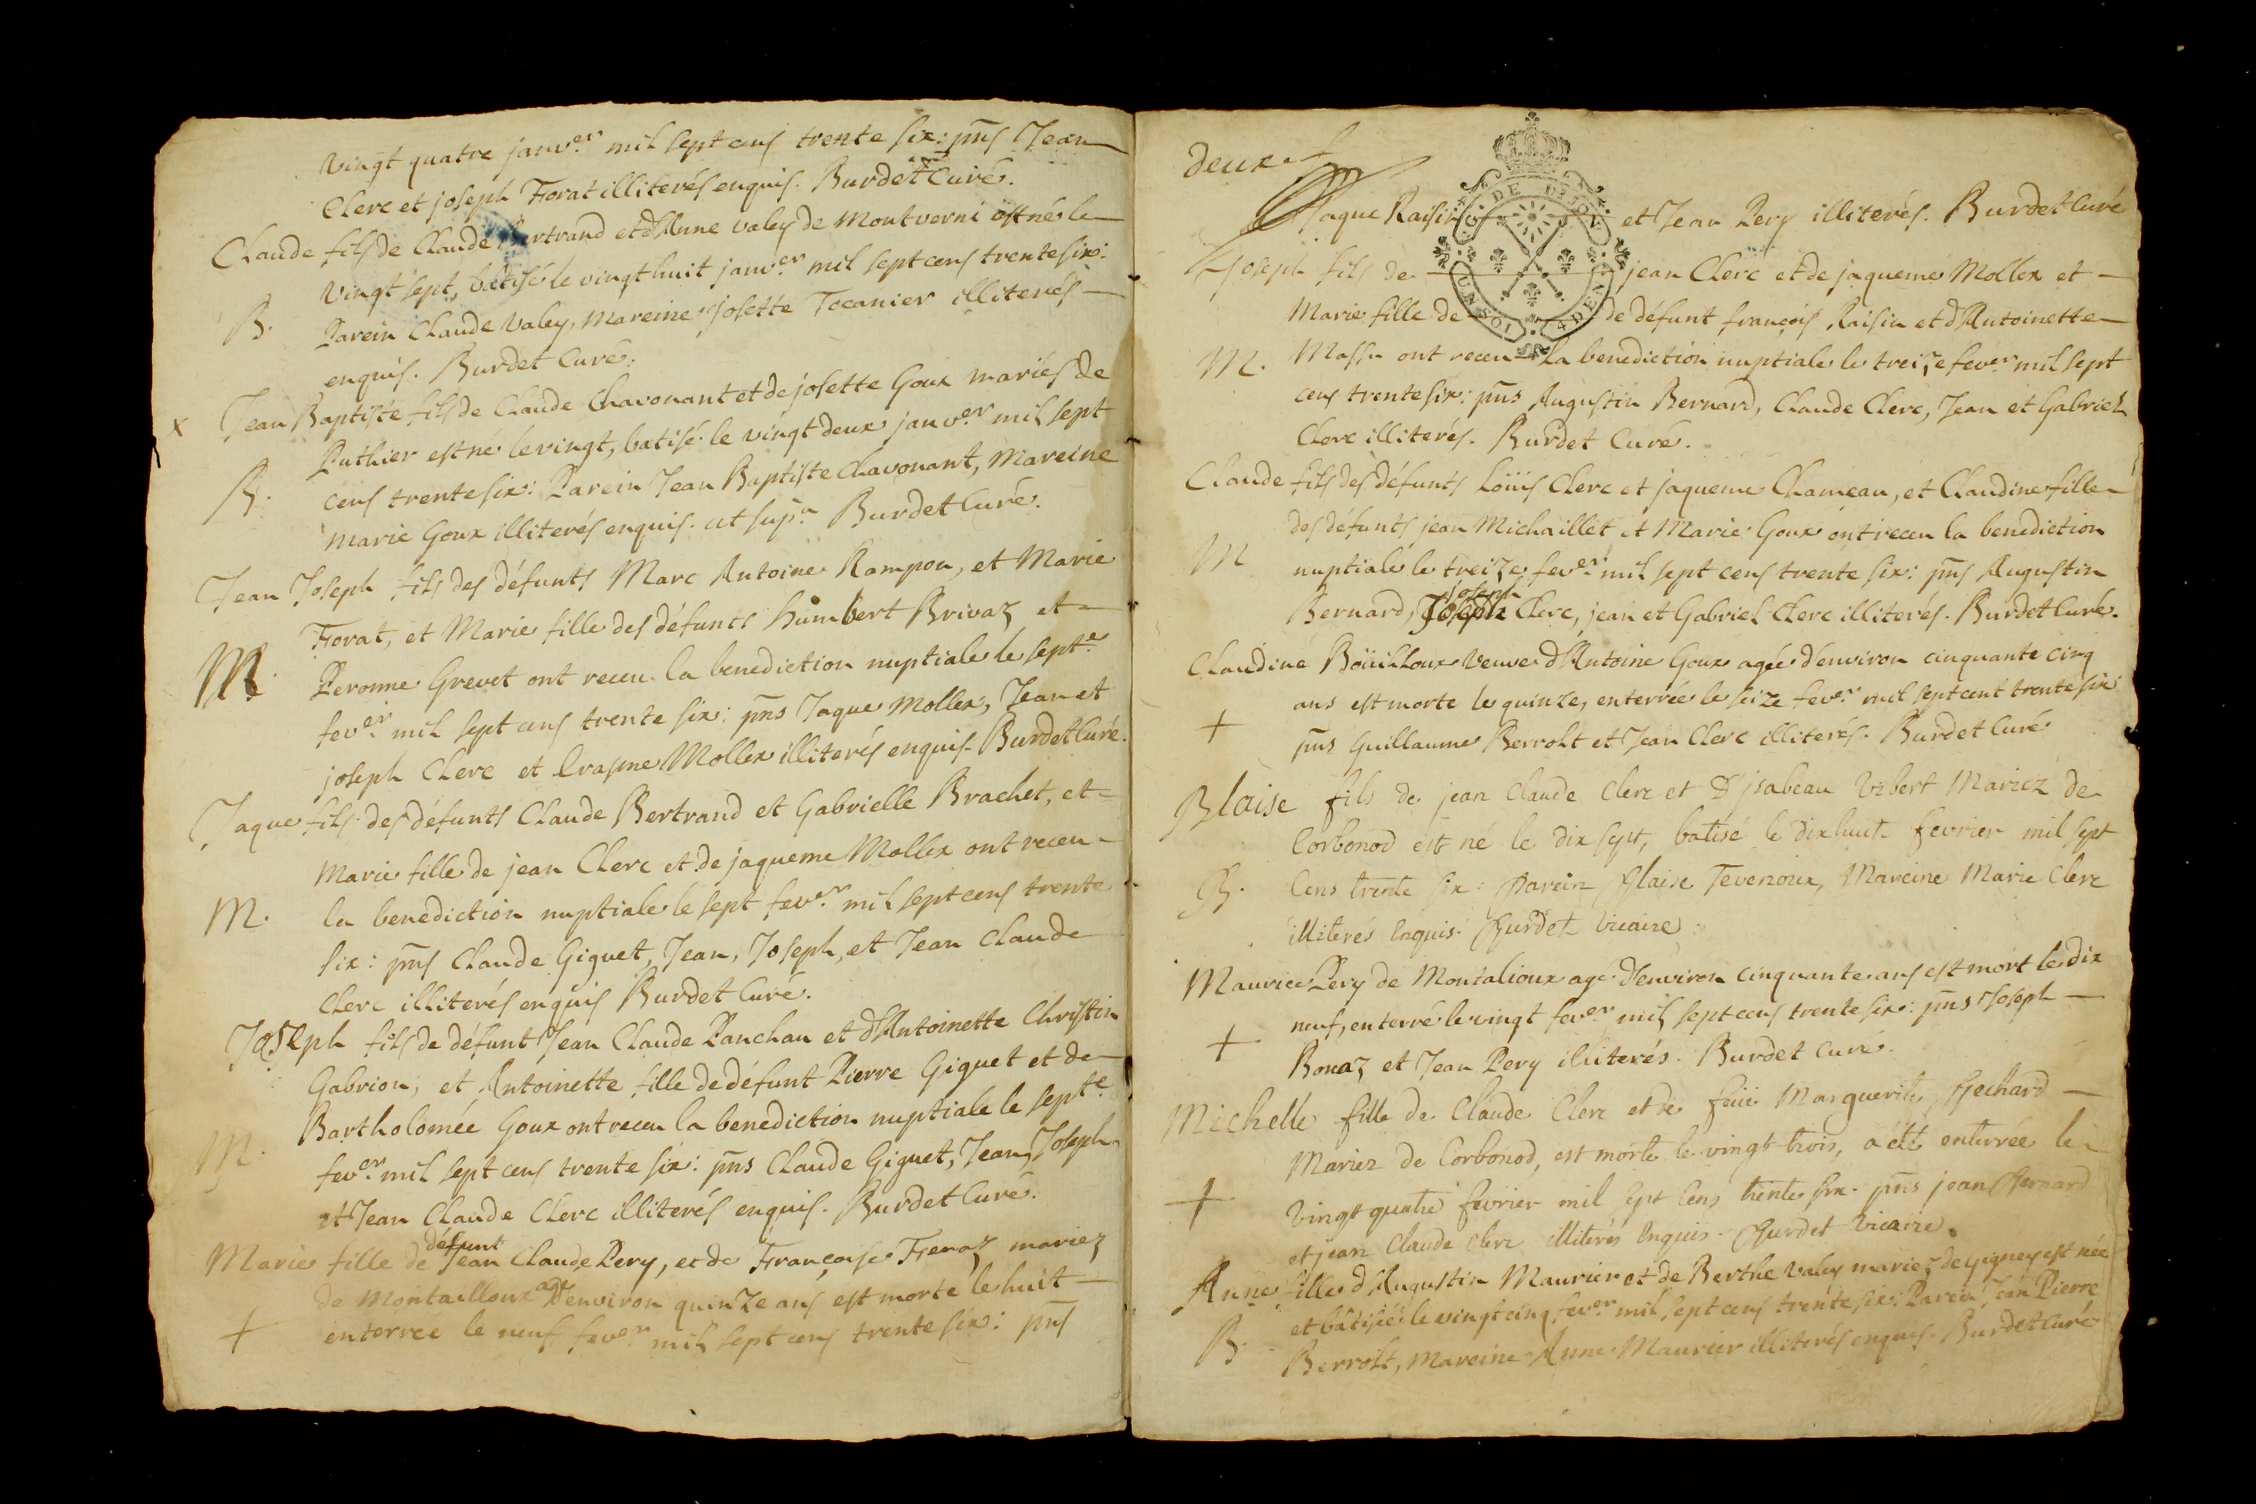 vingt quatre janv.er mil sept cens trente six: pns Jean
Clerc et joseph Forat illiterés enquis. Burdet Curé.
Claude fils de Claude Bertrand et d'Anne Valey de Montverni est né le
vingt sept, batisé le vingt huit janv.er mil sept cens trente six:
B. Parein Claude Valey, Mareine Josette Tocanier illiterés
enquis. Burdet Curé.
x Jean Baptiste fils de Claude Chavonant et de josette Goux mariés de
Puthier est né le vingt, batisé le vingt deux janv.er mil sept
B. cens trente six: Parein Jean Baptiste Chavonant, Mareine
Marie Goux illiterés enquis. ut sup.a Burdet Curé.
Jean Joseph fils des défunts Marc Antoine Rampon, et Marie
Forat, et Marie fille des défunts humbert Brivaz et
M. Peronne Grevet ont receu la benediction nuptiale le sept.e
fev.er mil sept cens trente six: pns Jaque Mollex, Jean et
joseph Clerc et Erasme Mollex illiterés enquis. Burdet Curé.
Jaque fils des défunts Claude Bertrand et Gabrielle Brachet, et
Marie fille de jean Clerc et de jaqueme Mollex ont receu
M. la benediction nuptiale le sept fev.er mil sept cens trente
six: pns Claude Giguet, Jean, Joseph, et Jean Claude
Clerc illiterés enquis Burdet Curé.
Joseph fils de défunt Jean Claude Panchau et d'Antoinette Christin
Gabrion; et Antoinette fille de défunt Pierre Giguet et de
M. Bartholomée Goux ont receu la benediction nuptiale le sept.e
fev.er mil sept cens trente six: pns Claude Giguet, Jean, Joseph
et Jean Claude Clerc illiterés enquis. Burdet Curé.
défunt
Marie fille de Jean Claude Pery, et de Françoise Frenaz mariez
de Montailloux age D'environ quinze ans est morte le huit
+ enterree le neuf fev.er mil sept cens trente six: pns
deux
GN. DE DIJON
UN SOL 4 DEN
Jaque Raisin et Jean Pery illiterés. Burdet Curé
Joseph fils de jean Clerc et de jaqueme Mollex et
Marie fille de de défunt françois Raisin et d'Antoinette
M. Massu ont receu la benediction nuptiale le treize fev.er mil sept
cens trente six: pns Augustin Bernard, Claude Clerc, Jean et Gabriel
Clerc illiterés. Burdet Curé.
Claude fils des défunts Loüis Clerc et jaqueme Chameau, et Claudine fille
des défunts jean Michaillet et Marie Goux ont receu la benediction
M nuptiale le treize fev.er mil sept cens trente six: pns Augustin
joseph
Bernard, Joseph Clerc, jean et Gabriel Clerc illiterés. Burdet Curé.
Claudine Boüilloux veuve d'Antoine Goux agée d'environ cinquante cinq
ans est morte le quinze, enterrée le seize fev.er mil sept cent trente six
+ pns Guillaume Berrolt et Jean Clerc illiterés. Burdet Curé
Blaise fils de jean Claude Clerc et D'jsabeau Vibert Mariez de
Corbonod est né le dix sept, batisé le dixhuit fevrier mil sept
B. Cens trente six: Parein Blaise Tevenoux, Mareine Marie Clerc
illiterés Enquis. Burdet Vicaire.
Maurice Pery de Montalioux age d'environ cinquante ans est mort le dix
neuf, enterré le vingt fev.er mil sept cens trente six: pns Joseph
+ Bonaz et Jean Pery illiterés. Burdet Curé.
Michelle fille de Claude Clerc et de feüe Marguerite Bechard
Mariez de Corbonod, est morte le vingt trois, a été enterrée le
+ vingt quatre fevrier mil sept Cens trente six. pns jean Bernard
et jean Claude Clerc illiterés Enquis. Burdet Vicaire.
Anne fille d'Augustin Maurier et de Berthe Valey mariez de Gigney est née
et bâtisée le vingt cinq fev.er mil sept cens trente six: Parein Jean Pierre
B. Berrolt, Mareine Anne Maurier illiterés enquis. Burdet Curé